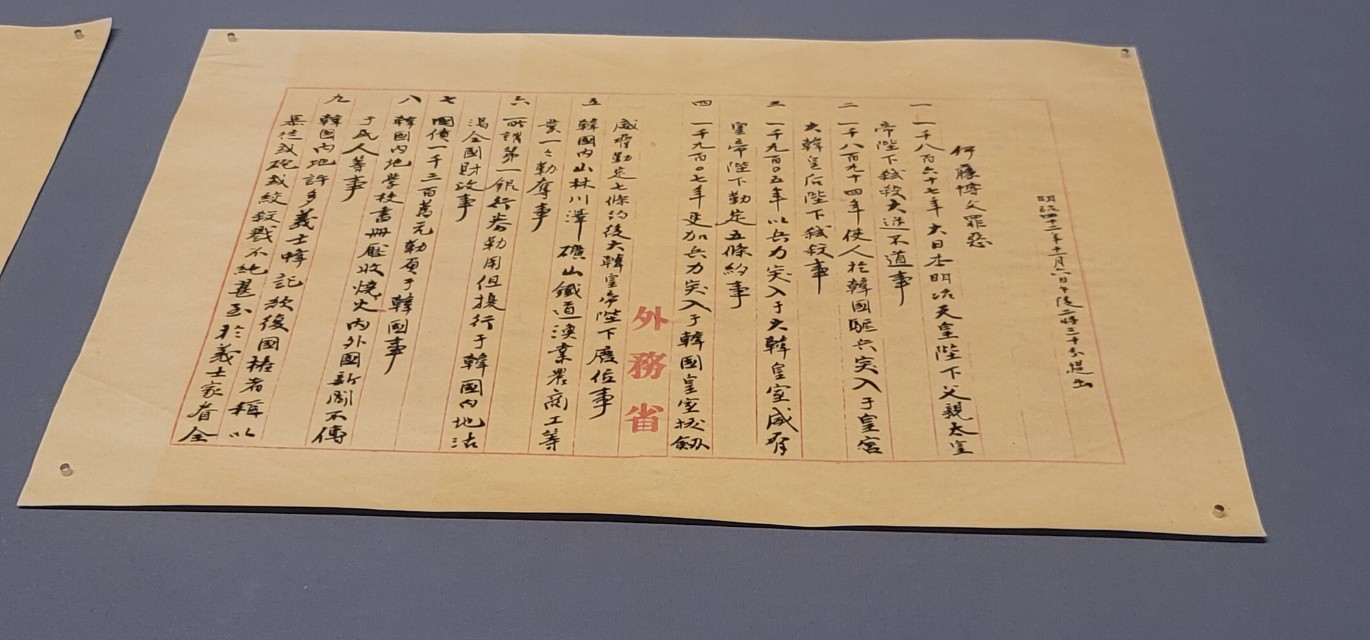 明治四十二年十一月六日午後二時三十分提出
伊藤博文罪惡
一 一千八百六十七年大日本明治天皇陛下父親太皇
帝陛下弑殺大逆不道事
二 一千八百九十四年使人於韓國驅兵突入于皇宮
大韓皇后陛下弑殺事
三 一千九百〇五年以兵力突入于大韓皇室威脅
皇帝陛下勒定五條約事
四 一千九百〇七年更加兵力突入于韓國皇室拔劔
外務省
威脅勒定七條約後大韓皇帝陛下廢位事
五 韓國內山林川澤礦山鐵道漁業農商工等
業一々勒奪事
六 所謂第一銀行券勒用但換行于韓國內地沽
渴全國財政事
七 國債一千三百萬元勒負于韓國事
八 韓國內地學校書冊壓收燒火內外國新聞不傳
于民人等事
九 韓國內地許多義士蜂起欲復國權者稱以
暴徒或砲或絞殺戮不絶甚至於義士家眷全